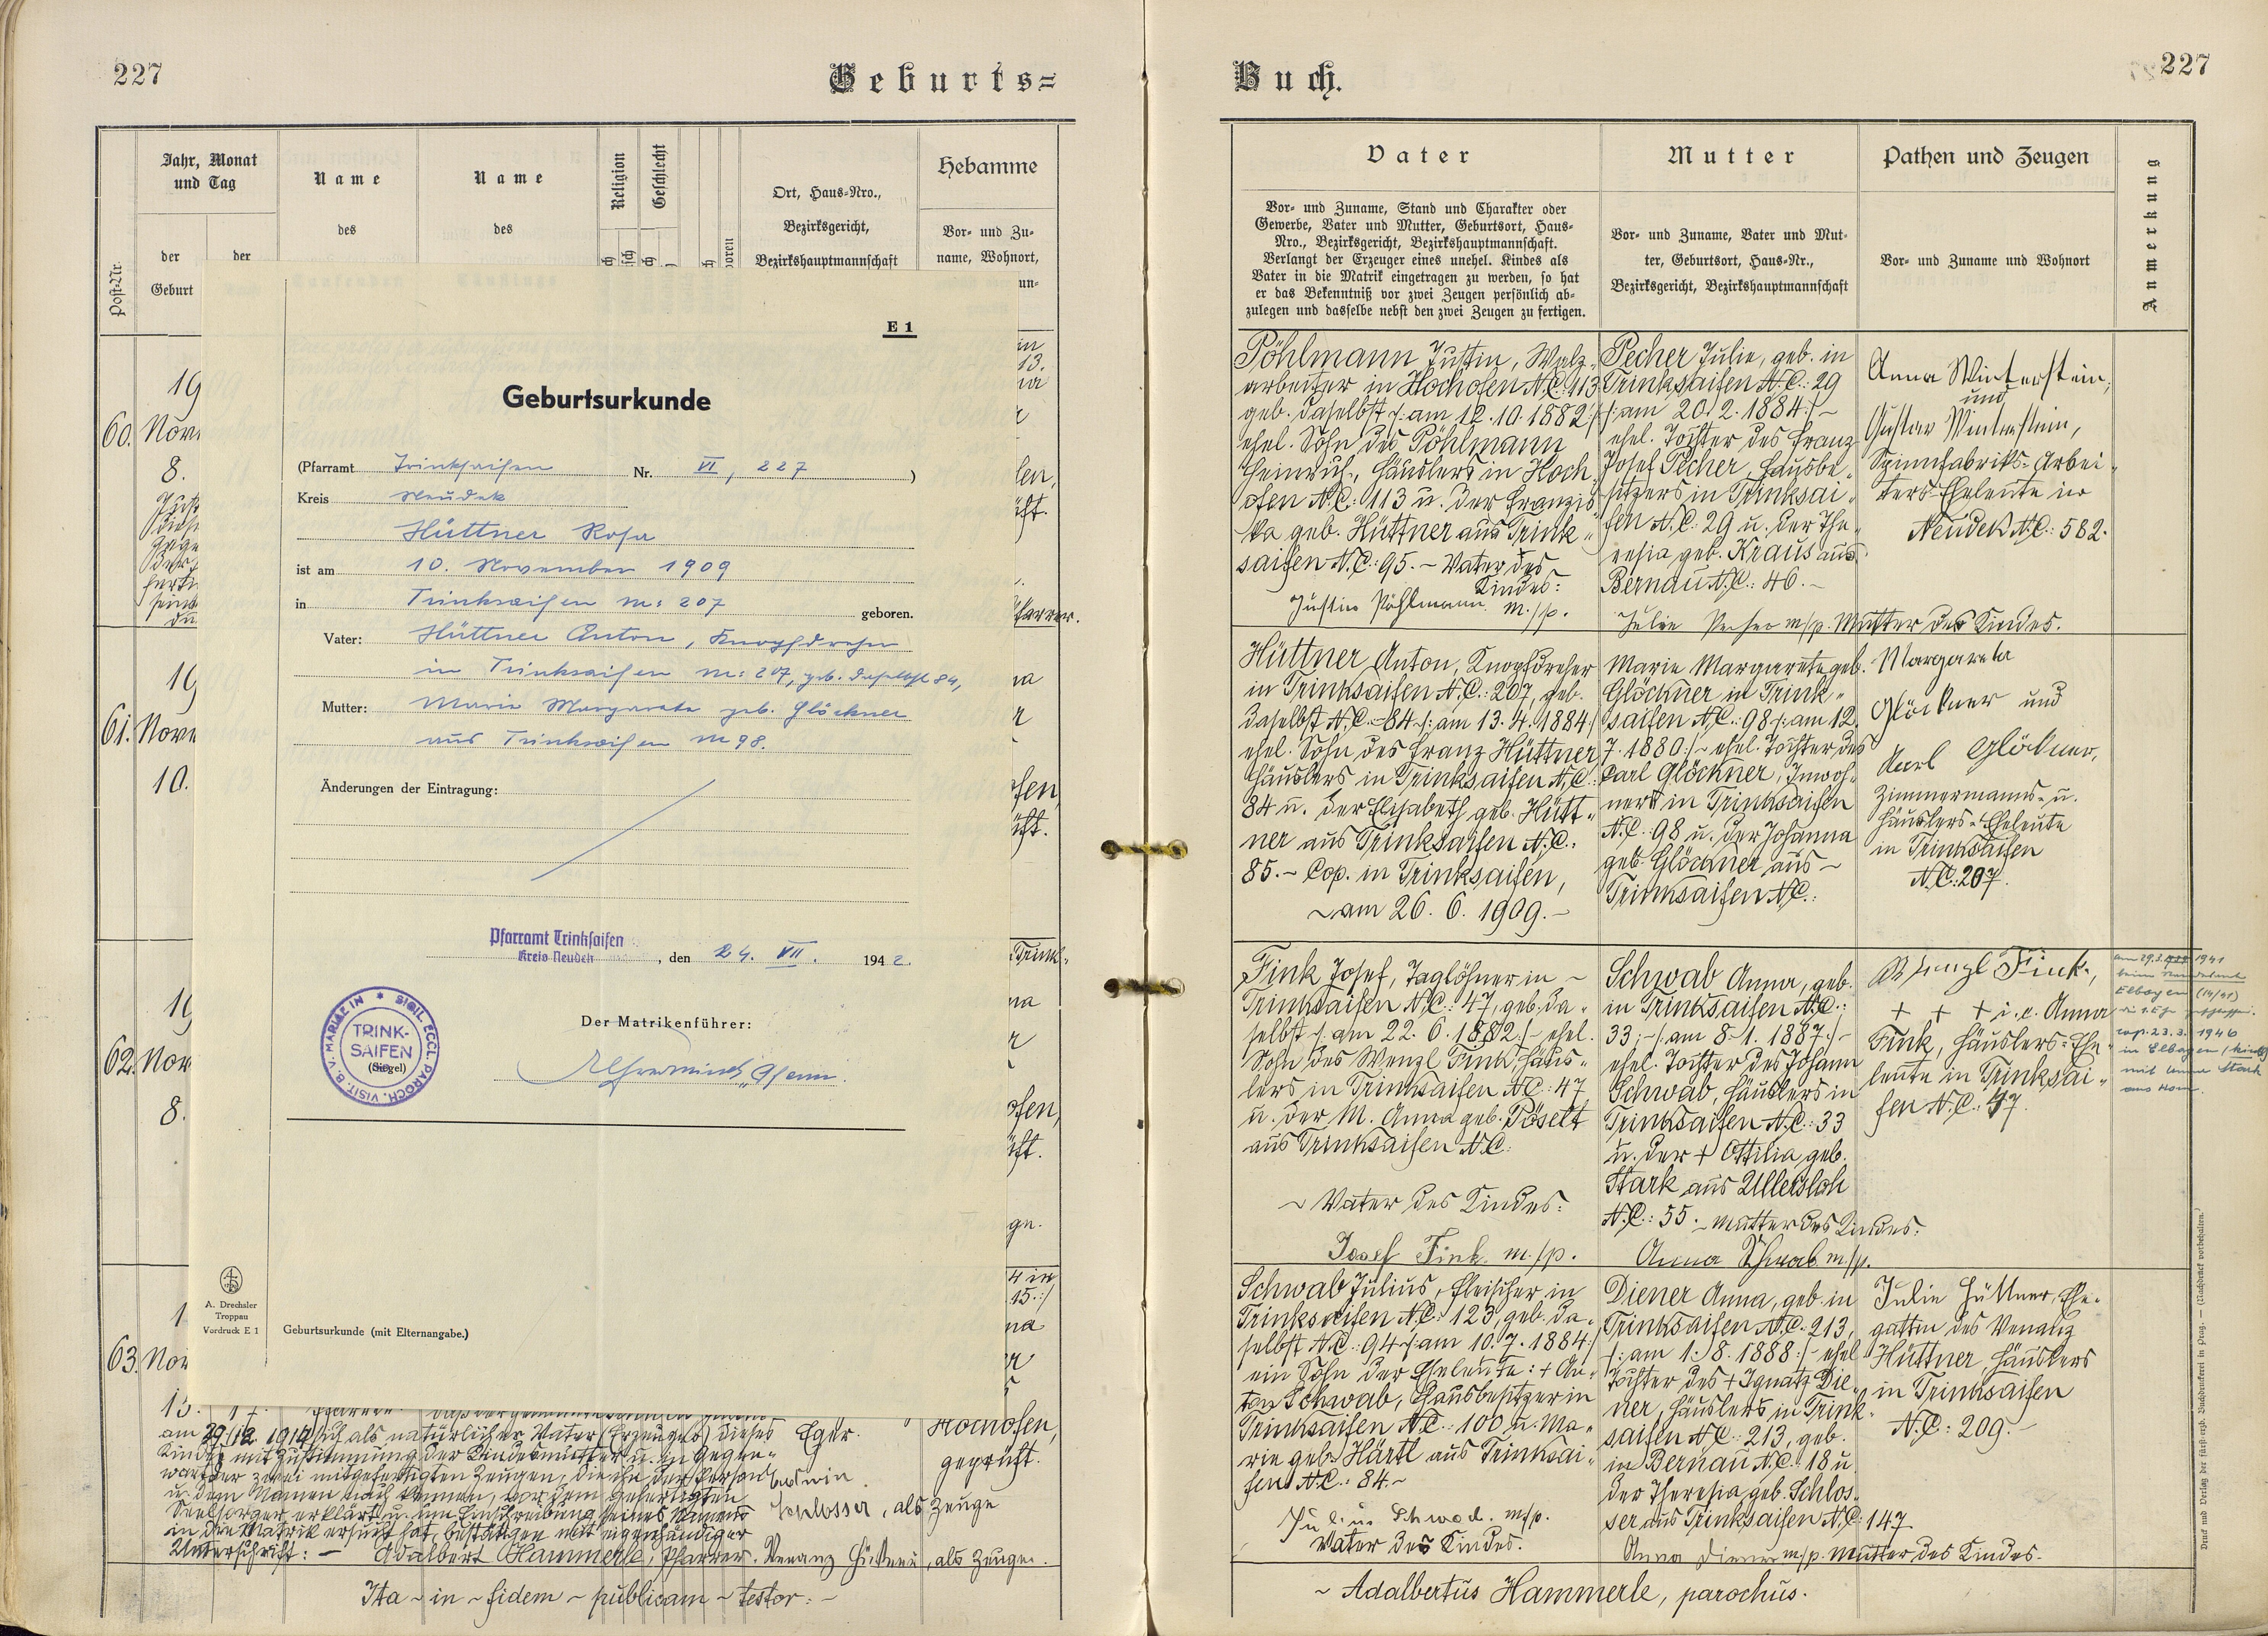 227
Geburts=
Jahr, Monat
und Tag
der
Geburt
der
Post-Nr.
Name
des
Name
des
Religion
Geschlecht
Ort, Haus-Nro.,
Bezirksgericht,
Bezirkshauptmannschaft
Hebamme
Vor- und Zu-
name, Wohnort,
60.
8.
61.
10.
62.
8.
63.
E 1
Geburtsurkunde
(Pfarramt Trinksaifen Nr. VI, 227 )
Kreis Neudek
Hüttner Rosa
ist am 10. November 1909
in Trinksaifen Nr: 207 geboren.
Vater: Hüttner Anton, Knopfdreher
in Trinksaifen Nr: 207, geb. daselbst 84,
Mutter: Marie Margareta geb. Glöckner
aus Trinksaifen Nr 98.
Änderungen der Eintragung:
Pfarramt Trinksaifen
Kreis Neudek
, den 24. VII. 1942.
Der Matrikenführer:
SIGIL. ECCL. PAROCH. VISIT. B. V. MARIAE IN
TRINK-
SAIFEN
(Siegel)
A. Drechsler
Troppau
Vordruck E 1
Geburtsurkunde (mit Elternangabe.)
am 29/12. 1914 sich als natürlicher Vater (Erzeuger) dieses
Kindes mit Zustimmung der Kindesmutter u. in Gegen-
wart der zwei mitgefertigten Zeugen, die ihn der Person
u. dem Namen nach kennen, vor dem gefertigten
Seelsorger erklärt u. um Einschreibung seines Namens
in die Matrik ersucht hat, bestätigen mit eigenhändiger
Unterschrift: – Adalbert Hammerle, Pfarrer. Venanz Hüttner, als Zeuge.
Eger.
Schlosser, als Zeuge
Hochofen,
geprüft.
Ita ~ in ~ fidem ~ publicam ~ testor: –
Buch.
227
Vater
Vor- und Zuname, Stand und Charakter oder
Gewerbe, Vater und Mutter, Geburtsort, Haus-
Nro., Bezirksgericht, Bezirkshauptmannschaft.
Verlangt der Erzeuger eines unehel. Kindes als
Vater in die Matrik eingetragen zu werden, so hat
er das Bekenntniß vor zwei Zeugen persönlich ab-
zulegen und dasselbe nebst den zwei Zeugen zu fertigen.
Mutter
Vor- und Zuname, Vater und Mut-
ter, Geburtsort, Haus-Nr.,
Bezirksgericht, Bezirkshauptmannschaft
Pathen und Zeugen
Vor- und Zuname und Wohnort
Anmerkung
Pöhlmann Justin, Walz-
arbeiter in Hochofen N.C. 113
geb. daselbst /: am 12.10.1882 :/
ehel. Sohn des Pöhlmann
Heinrich, Häuslers in Hoch-
ofen N.C.: 113 u. der Franzis-
ka geb. Hüttner aus Trink-
saifen N.C.: 95. ~ Vater des
Kindes:
Justin Pöhlmann m./p.
Pecher Julie, geb. in
Trinksaifen N.C.: 29
/: am 20. 2. 1884 :/ ~
ehel. Tochter des Franz
Josef Pecher, Hausbe-
sitzers in Trinksai-
fen N.C.: 29 u. der The-
resia geb. Kraus aus
Bernau N.C.: 46. ~
Julie Pecher m/p. Mutter des Kindes.
Anna Winterstein,
und
Gustav Winterstein,
Spinnfabriks-Arbei-
ters-Eheleute in
Neudek N.C.: 582.
Hüttner Anton, Knopfdreher
in Trinksaifen N.C.: 207, geb.
daselbst N.C. 84 /: am 13. 4. 1884 :/
ehel. Sohn des Franz Hüttner
Häuslers in Trinksaifen N.C.:
84 u. der Elisabeth geb. Hütt-
ner aus Trinksaifen N.C.:
85. ~ Cop. in Trinksaifen,
~ am 26. 6. 1909. ~
Marie Margarete geb.
Glöckner in Trink-
saifen N.C.: 98 /: am 12.
7. 1880 :/ ~ ehel. Tochter des
Carl Glöckner, Inwoh-
ners in Trinksaifen
N.C.: 98 u. der Johanna
geb. Glöckner aus ~
Trinksaifen N.C.:
Margareta
Glöckner und
Karl Glöckner,
Zimmermanns- u.
Häuslers-Eheleute
in Trinksaifen
N.C.: 207.
Fink Josef, Taglöhner in ~
Trinksaifen N.C.: 47, geb. da-
selbst /: am 22. 6. 1882 :/ ~ ehel.
Sohn des Wenzl Fink, Häus-
lers in Trinksaifen N.C.: 47
u. der M. Anna geb. Pöselt
aus Trinksaifen N.C.
~ Vater des Kindes:
Josef Fink m./p.
Schwab Anna, geb.
in Trinksaifen N.C.:
33; /: am 8. 1. 1887 :/ ~
ehel. Tochter des Johann
Schwab, Häuslers in
Trinksaifen N.C.: 33
u. der + Ottilia geb.
Stark aus Ullersloh
N.C.: 55. ~ Mutter des Kindes:
Anna Schwab m/p.
Wenzl Fink,
+ + + i. e. Anna
Fink, Häuslers-Ehe-
leute in Trinksai-
fen N.C.: 47.
cop. 23. 3. 1946
in Elbogen
Schwab Julius, Fleischer in
Trinksaifen N.C.: 123, geb. da-
selbst N.C.: 94 /: am 10. 7. 1884 :/
ein Sohn der Eheleute: + An-
ton Schwab, Hausbesitzer in
Trinksaifen N.C.: 100 u. Ma-
rie geb. Härtl aus Trinksai-
fen N.C.: 84 ~
Julius Schwab. m/p.
Vater des Kindes.
Diener Anna, geb. in
Trinksaifen N.C. 213,
/: am 1. 8. 1888 :/ ~ ehel.
Tochter des + Ignatz Die-
ner, Häuslers in Trink-
saifen N.C.: 213, geb.
in Bernau N.C.: 18 u.
der Theresia geb. Schlos-
ser aus Trinksaifen N.C.: 147.
Anna Diener m/p. Mutter des Kindes.
Julie Hüttner, Ehe-
gattin des Venanz
Hüttner, Häuslers
in Trinksaifen
N.C.: 209. ~
~ Adalbertus Hammerle, parochus.
Druck und Verlag der fürst-erzb. Buchdruckerei in Prag. – (Nachdruck vorbehalten.)